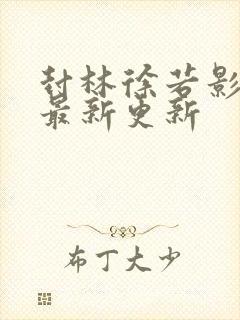 封林徐若影
最新更新
布丁大少